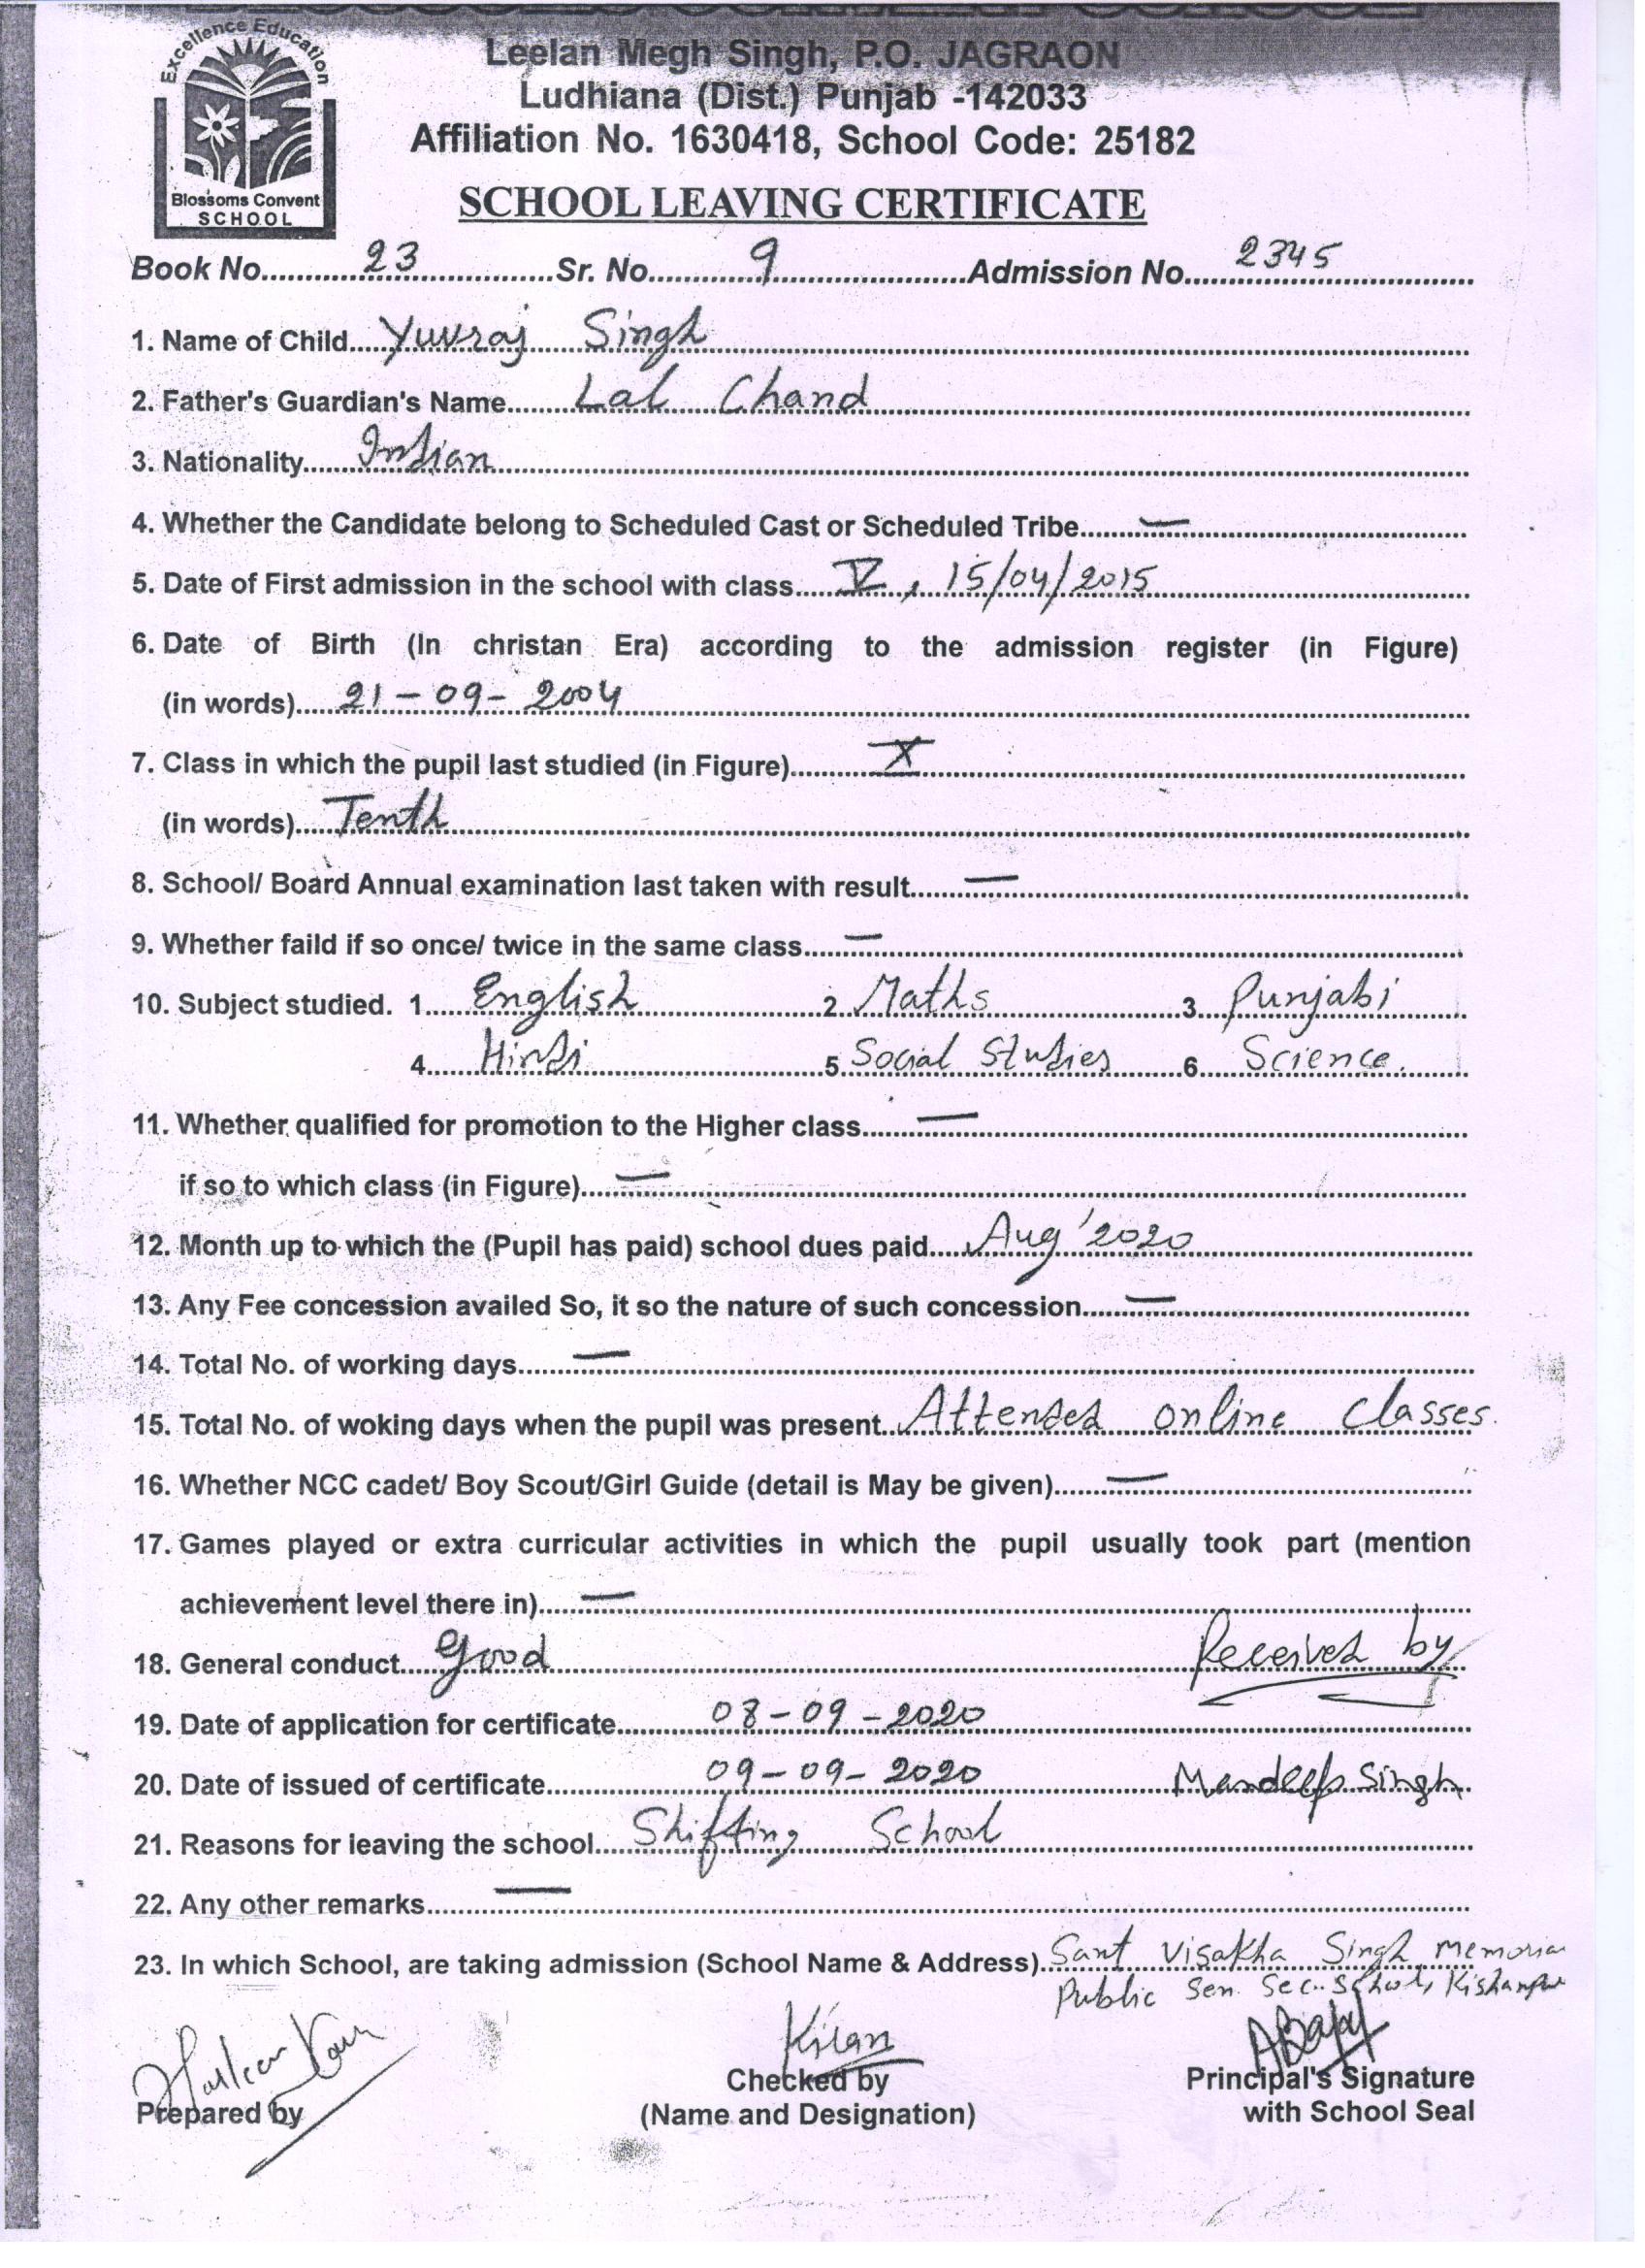 Excellence Education
Blossoms Convent
SCHOOL
Leelan Megh Singh, P.O. JAGRAON
Ludhiana (Dist.) Punjab -142033
Affiliation No. 1630418, School Code: 25182
SCHOOL LEAVING CERTIFICATE
Book No. 23 Sr. No. 9 Admission No. 2345
1. Name of Child Yuvraj Singh
2. Father's Guardian's Name Lal Chand
3. Nationality Indian
4. Whether the Candidate belong to Scheduled Cast or Scheduled Tribe —
5. Date of First admission in the school with class V, 15/04/2015
6. Date of Birth (In christan Era) according to the admission register (in Figure)
(in words) 21-09-2004
7. Class in which the pupil last studied (in Figure) X
(in words) Tenth
8. School/ Board Annual examination last taken with result —
9. Whether faild if so once/ twice in the same class —
10. Subject studied. 1. English 2. Maths 3. Punjabi
4. Hindi 5. Social Studies 6. Science.
11. Whether qualified for promotion to the Higher class —
if so to which class (in Figure) —
12. Month up to which the (Pupil has paid) school dues paid Aug '2020
13. Any Fee concession availed So, it so the nature of such concession —
14. Total No. of working days —
15. Total No. of woking days when the pupil was present Attended online classes.
16. Whether NCC cadet/ Boy Scout/Girl Guide (detail is May be given) —
17. Games played or extra curricular activities in which the pupil usually took part (mention
achievement level there in) —
18. General conduct good Received by
19. Date of application for certificate 08-09-2020
20. Date of issued of certificate 09-09-2020 Mandeep Singh
21. Reasons for leaving the school Shifting School
22. Any other remarks —
23. In which School, are taking admission (School Name & Address) Sant Visakha Singh Memoria
Public Sen. Sec. School, Kishanpu
Kiran
Prepared by
Checked by
(Name and Designation)
Principal's Signature
with School Seal